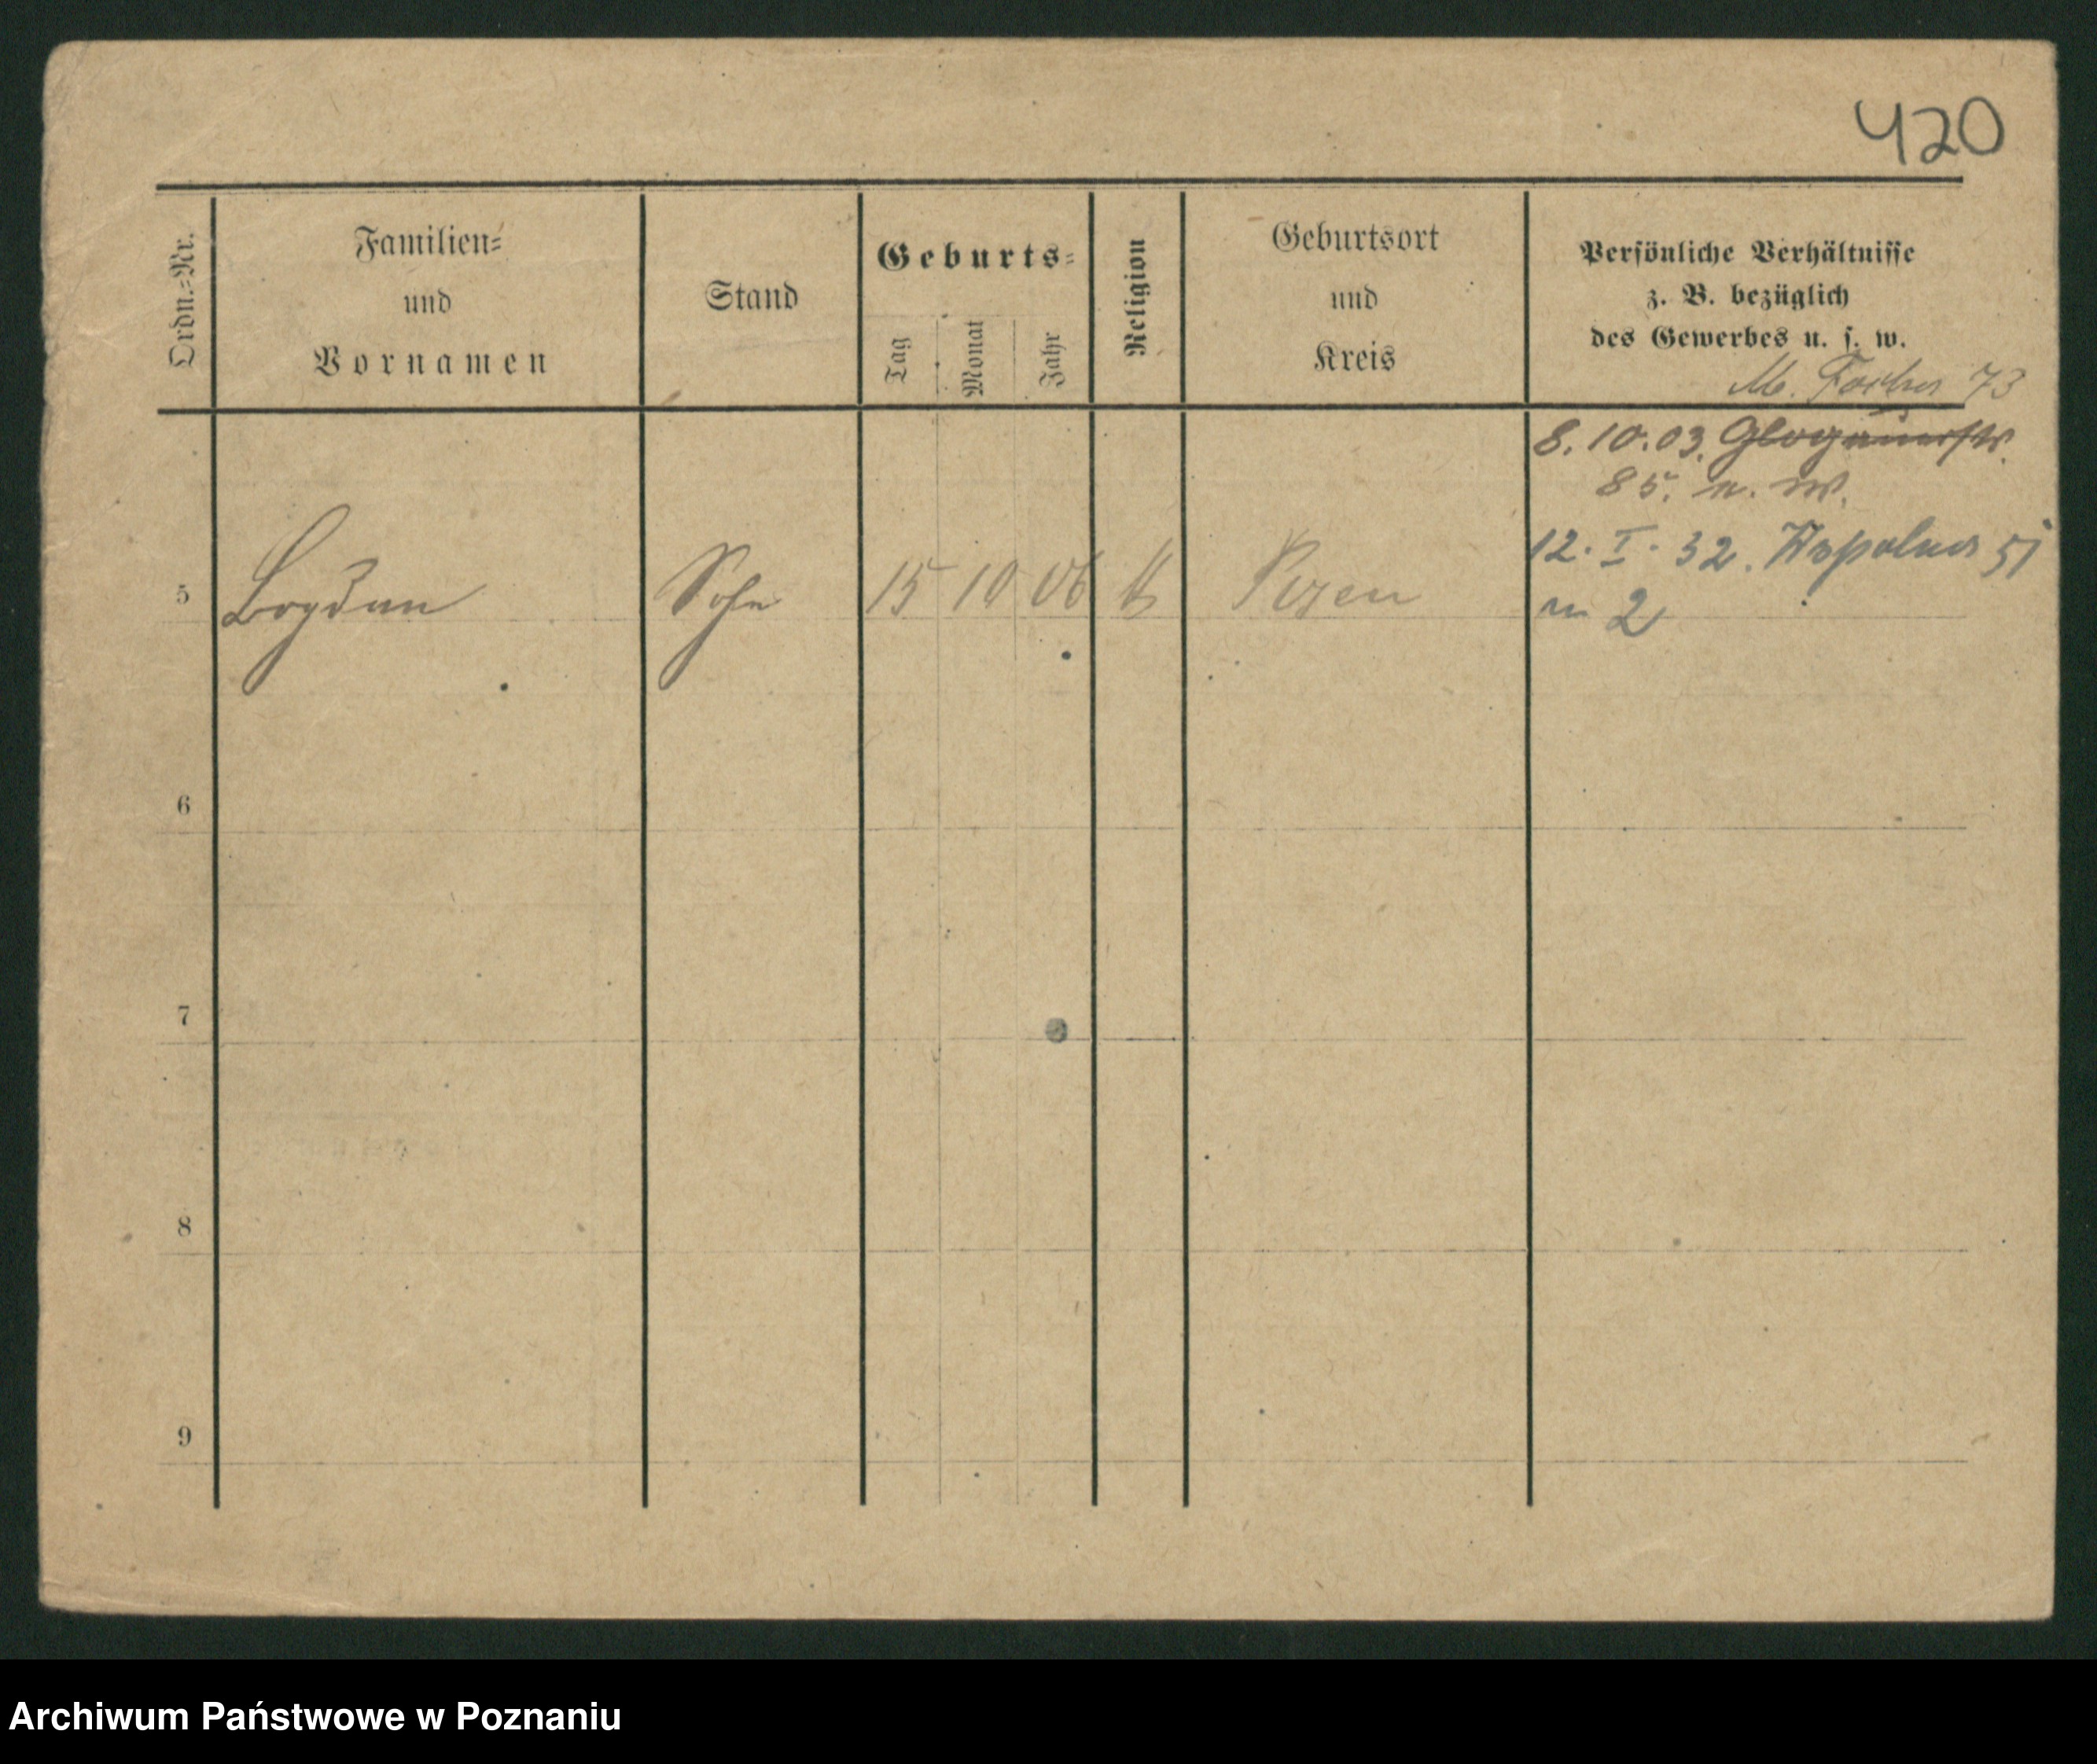 420
Ordn.-Nr.
Familien-
und
Vornamen
Stand
Geburts-
Tag
Monat
Jahr
Religion
Geburtsort
und
Kreis
Persönliche Verhältnisse
z. B. bezüglich
des Gewerbes u. s. w.
M. Focha 73
8.10.03. Glogauerstr.
85. n. W.
12. I. 32. 51
m 2
5 Bogdan Sohn 15 10 06 Posen
6
7
8
9
Archiwum Państwowe w Poznaniu